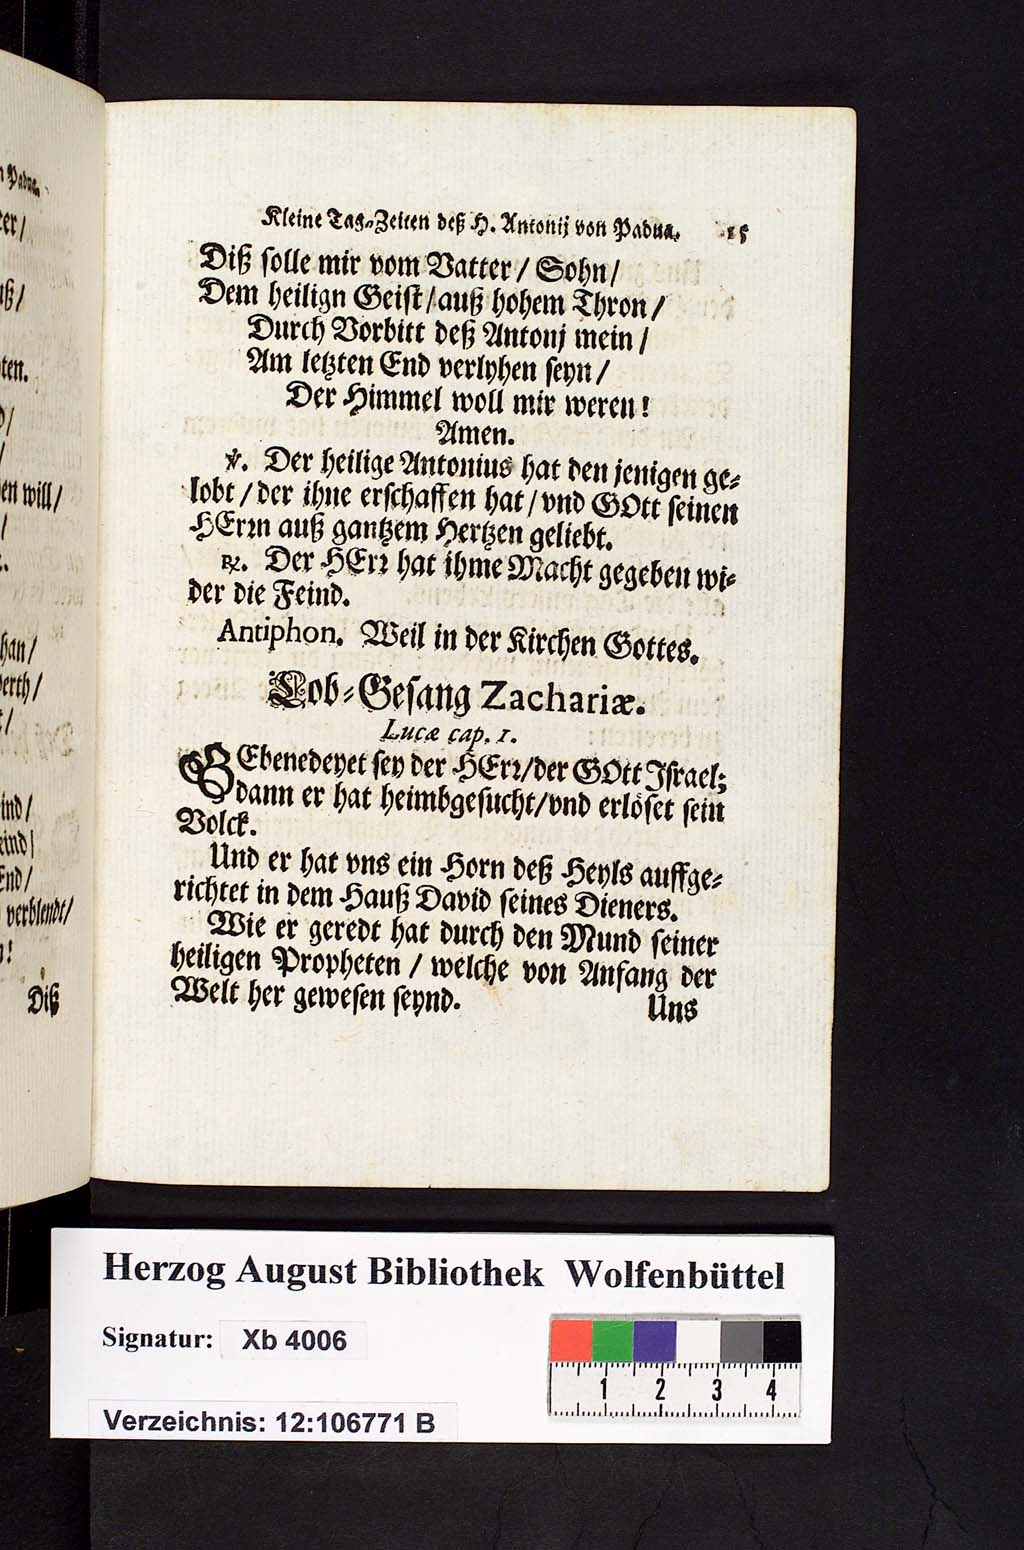 n Padua.
er/
ß/
ten.
/
en will/
/
han/
erth/
/
ind/
eind/
End/
verblendt/
!
Diß
Kleine Tag-Zeiten deß H. Antonij von Padua. 15
Diß solle mir vom Vatter / Sohn /
Dem heilign Geist / auß hohem Thron /
Durch Vorbitt deß Antonj mein /
Am letzten End verlyhen seyn /
Der Himmel woll mir weren!
Amen.
℣. Der heilige Antonius hat den jenigen ge-
lobt / der ihne erschaffen hat / vnd GOtt seinen
HErrn auß gantzem Hertzen geliebt.
℟. Der HErr hat ihme Macht gegeben wi-
der die Feind.
Antiphon. Weil in der Kirchen Gottes.
Lob-Gesang Zachariæ.
Lucæ cap. 1.
GEbenedeyet sey der HErr / der GOtt Israel;
dann er hat heimbgesucht / vnd erlöset sein
Volck.
Und er hat vns ein Horn deß Heyls auffge-
richtet in dem Hauß David seines Dieners.
Wie er geredt hat durch den Mund seiner
heiligen Propheten / welche von Anfang der
Welt her gewesen seynd.
Uns
Herzog August Bibliothek Wolfenbüttel
Signatur: Xb 4006
Verzeichnis: 12:106771 B
1 2 3 4